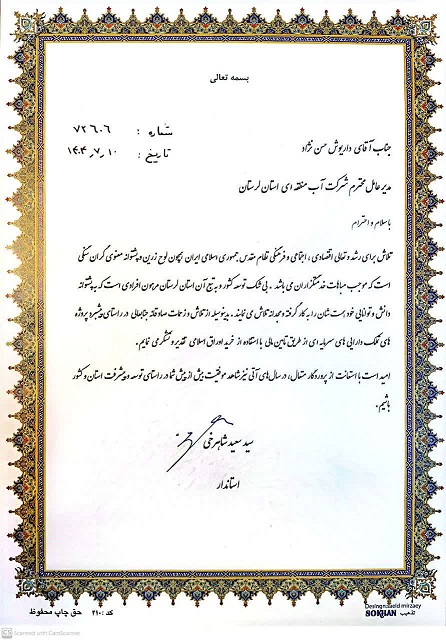 بسمه تعالی
شماره : ۷۲۶۰۶
تاریخ : ۱۴۰۴٫۷٫۱۰
جناب آقای داریوش حسن نژاد
مدیرعامل محترم شرکت آب منطقه ای استان لرستان
با سلام و احترام
تلاش برای رشد و تعالی اقتصادی ، اجتماعی و فرهنگی نظام مقدس جمهوری اسلامی ایران همچون لوح زرین و پشتوانه معنوی گران سنگی
است که موجب مباهات خدمتگزاران می باشد . بی شک توسعه کشور و به تبع آن استان لرستان مرهون افرادی است که به پشتوانه
دانش و توانایی خود همت شان را به کار گرفته و مجدانه تلاش می نمایند. بدینوسیله از تلاش و زحمات صادقانه جنابعالی در راستای پیشبرد پروژه
های تملک دارایی های سرمایه ای از طریق تامین مالی با استفاده از خرید اوراق اسلامی تقدیر و تشکر می نمایم.
امید است با استعانت از پروردگار متعال، در سال های آتی نیز شاهد موفقیت بیش از پیش شما در راستای توسعه و پیشرفت استان و کشور
باشیم.
سید سعید شاهرخی
استاندار
Designer:saeid mirzaey
تذهیب SOKHAN
کد : ۲۱۰ حق چاپ محفوظ
CS Scanned with CamScanner